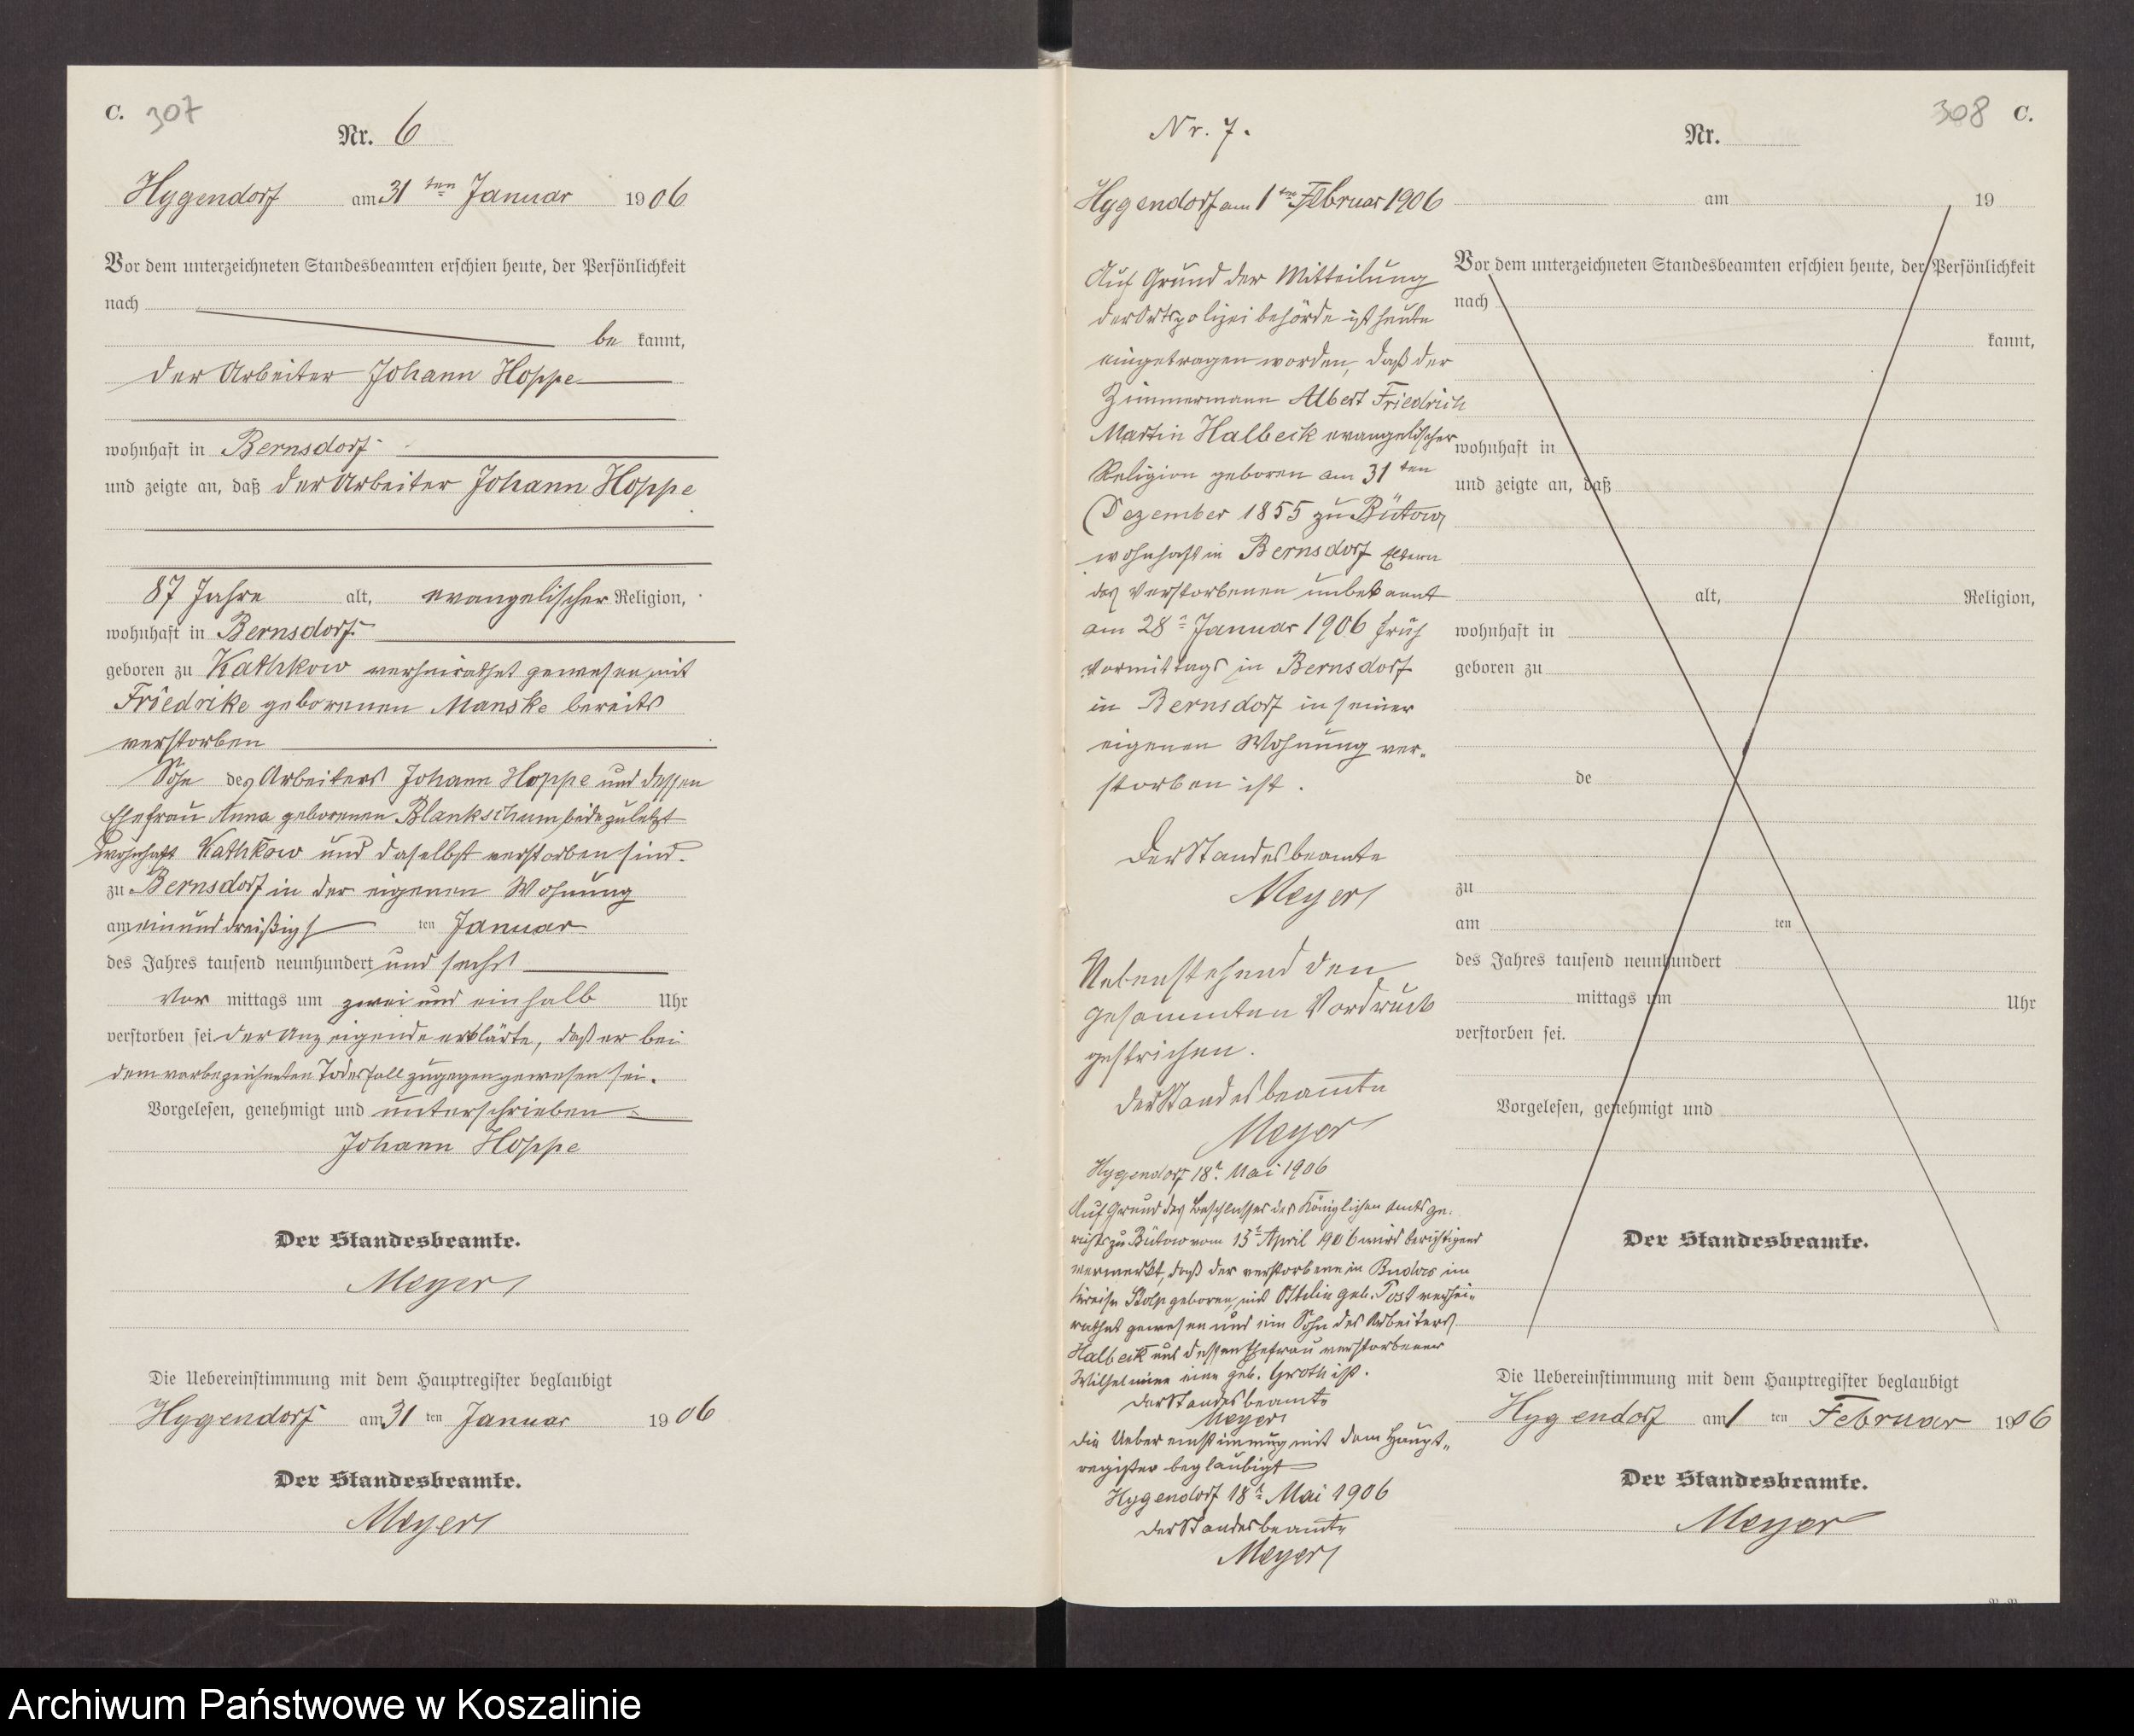 C. 307
Nr. 6
Hygendorf am 31 ten Januar 1906
Vor dem unterzeichneten Standesbeamten erschien heute, der Persönlichkeit
nach
be kannt,
der Arbeiter Johann Hoppe
wohnhaft in Bernsdorf
und zeigte an, daß der Arbeiter Johann Hoppe
87 Jahre alt, evangelischer Religion,
wohnhaft in Bernsdorf
geboren zu Kathkow verheirathet gewesen mit
Friedrike geborenen Manske bereits
verstorben
Sohn des Arbeiters Johann Hoppe und dessen
Ehefrau Anna geborenen Blankschum beide zuletzt
wohnhaft Kathkow und daselbst verstorben sind.
zu Bernsdorf in der eigenen Wohnung
am einunddreißigs ten Januar
des Jahres tausend neunhundert und sechs
Vor mittags um zwei und einhalb Uhr
verstorben sei. der Anzeigende erklärte, daß er bei
dem vorbezeichneten Todesfall zugegen gewesen sei.
Vorgelesen, genehmigt und unterschrieben
Johann Hoppe
Der Standesbeamte.
Meyer
Die Uebereinstimmung mit dem Hauptregister beglaubigt
Hygendorf am 31 ten Januar 1906
Der Standesbeamte.
Meyer
Nr. 7.
Hygendorf am 1 ten Februar 1906
Auf Grund der Mitteilung
der Ortspolizeibehörde ist heute
eingetragen worden, daß der
Zimmermann Albert Friedrich
Martin Halbeck evangelischer
Religion geboren am 31 ten
Dezember 1855 zu Bütow,
wohnhaft in Bernsdorf Eltern
des Verstorbenen unbekannt
am 28 n Januar 1906 früh
Vormittags in Bernsdorf
in Bernsdorf in seiner
eigenen Wohnung ver-
storben ist.
Der Standesbeamte
Meyer
Nebenstehend den
gesammten Vordruck
gestrichen.
Der Standesbeamte
Meyer
Hygendorf 18 t. Mai 1906
Auf Grund des Beschlusses des Königlichen Amtsge-
richts zu Bütow vom 15 t April 1906 wird berichtigend
vermerkt, daß der verstorbene in Budow im
Kreise Stolp geboren, mit Ottilie geb. Post verhei-
rathet gewesen und ein Sohn des Arbeiters
Halbeck und dessen Ehefrau verstorbener
Wilhelmine eine geb. Groth ist.
Der Standesbeamte
Meyer
Die Uebereinstimmung mit dem Haupt-
register beglaubigt
Hygendorf 18 t Mai 1906
Der Standesbeamte
Meyer
308 C.
Nr.
am 19
Vor dem unterzeichneten Standesbeamten erschien heute, der Persönlichkeit
nach
kannt,
wohnhaft in
und zeigte an, daß
alt, Religion,
wohnhaft in
geboren zu
de
zu
am ten
des Jahres tausend neunhundert
mittags um Uhr
verstorben sei.
Vorgelesen, genehmigt und
Der Standesbeamte.
Die Uebereinstimmung mit dem Hauptregister beglaubigt
Hygendorf am 1 ten Februar 1906
Der Standesbeamte.
Meyer
Archiwum Państwowe w Koszalinie